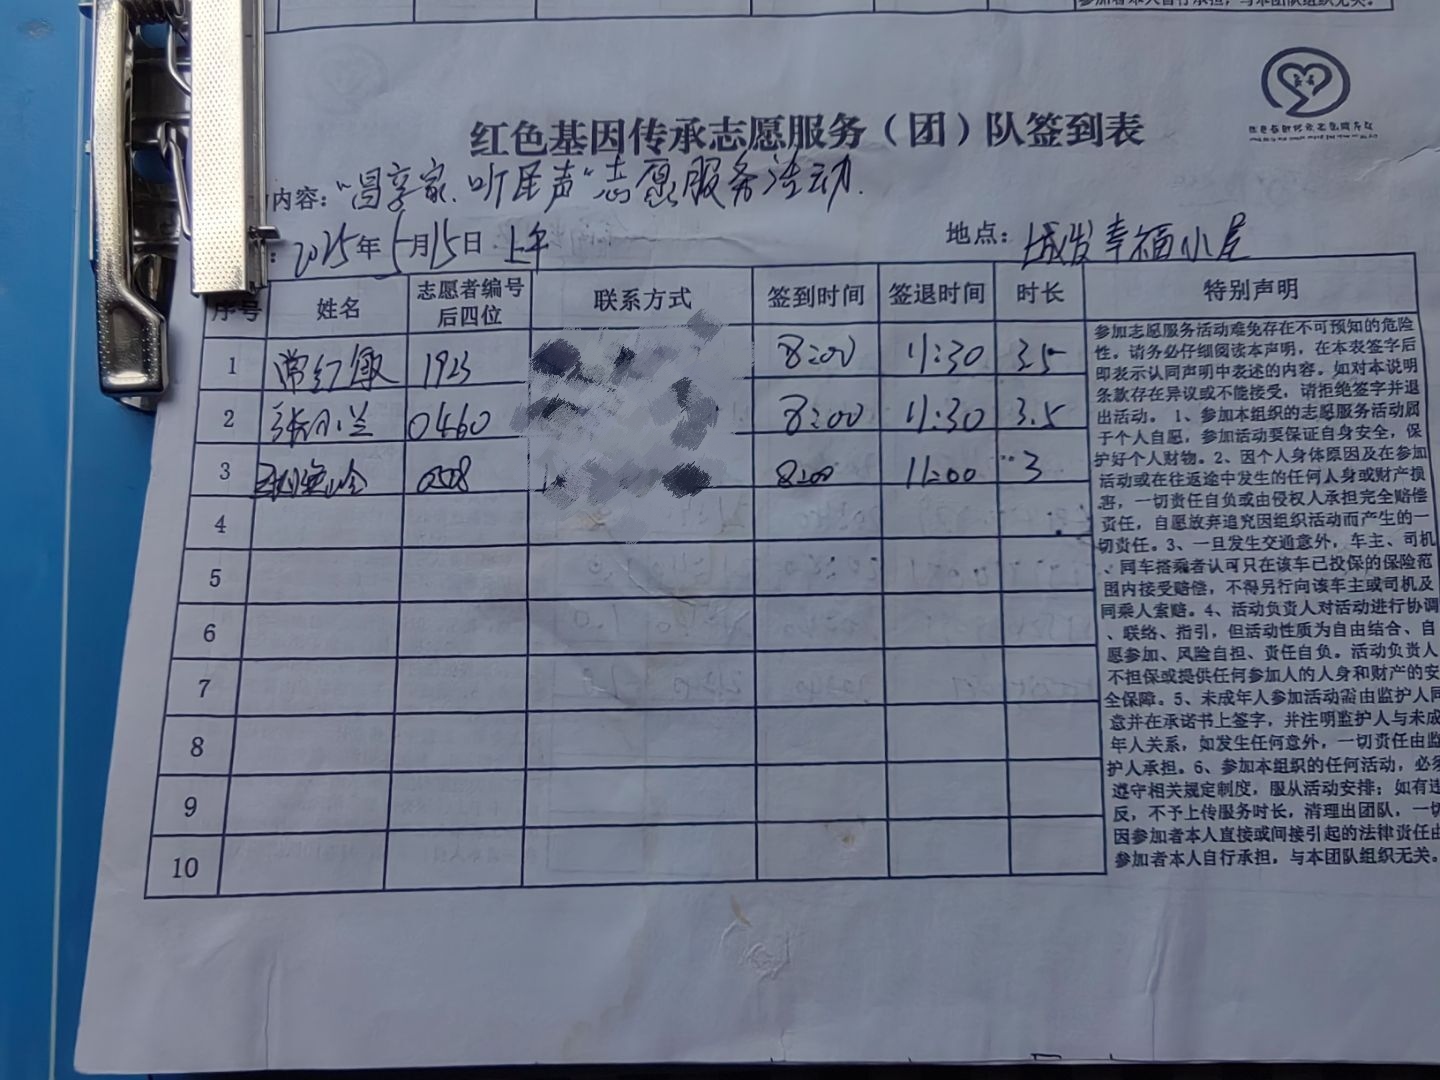 参加者本人自行承担，与本团队组织无关。
红色基因传承志愿服务（团）队签到表
内容：“昌享家、听民声”志愿服务活动.
：2025年5月15日 上午 地点：城发幸福小屋
序号 姓名 志愿者编号后四位 联系方式 签到时间 签退时间 时长 特别声明
1 常红敏 1923 8:00 11:30 3.5
2 张小兰 0460 8:00 11:30 3.5
3 8:00 11:00 3
4
5
6
7
8
9
10
参加志愿服务活动难免存在不可预知的危险
性。请务必仔细阅读本声明，在本表签字后
即表示认同声明中表述的内容。如对本说明
条款存在异议或不能接受，请拒绝签字并退
出活动。 1、参加本组织的志愿服务活动属
于个人自愿，参加活动要保证自身安全，保
护好个人财物。2、因个人身体原因及在参加
活动或在往返途中发生的任何人身或财产损
害，一切责任自负或由侵权人承担完全赔偿
责任，自愿放弃追究因组织活动而产生的一
切责任。3、一旦发生交通意外，车主、司机
、同车搭乘者认可只在该车已投保的保险范
围内接受赔偿，不得另行向该车主或司机及
同乘人索赔。4、活动负责人对活动进行协调
、联络、指引，但活动性质为自由结合、自
愿参加、风险自担、责任自负。活动负责人
不担保或提供任何参加人的人身和财产的安
全保障。5、未成年人参加活动需由监护人同
意并在承诺书上签字，并注明监护人与未成
年人关系，如发生任何意外，一切责任由监
护人承担。6、参加本组织的任何活动，必须
遵守相关规定制度，服从活动安排；如有违
反，不予上传服务时长，清理出团队，一切
因参加者本人直接或间接引起的法律责任由
参加者本人自行承担，与本团队组织无关。